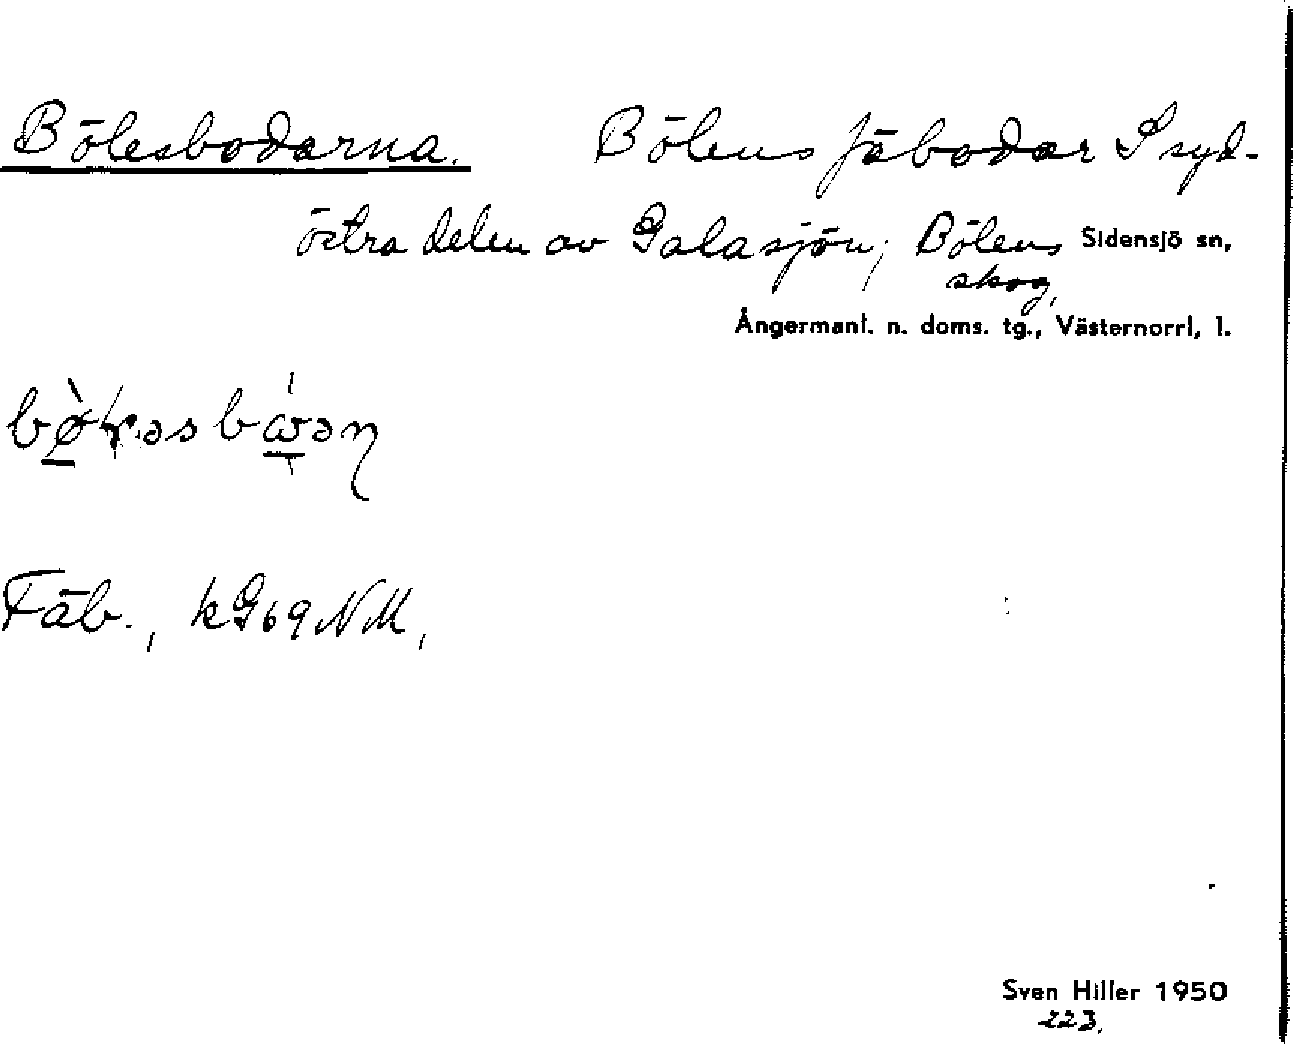 Bölesbodarna. Bölens fäbodar I syd-
östra delen av Galasjön; Bölens Sidensjö sn,
skog,
Ångermanl. n. doms. tg., Västernorrl, l.
Fäb., kG69NM,
Sven Hiller 1950
223.